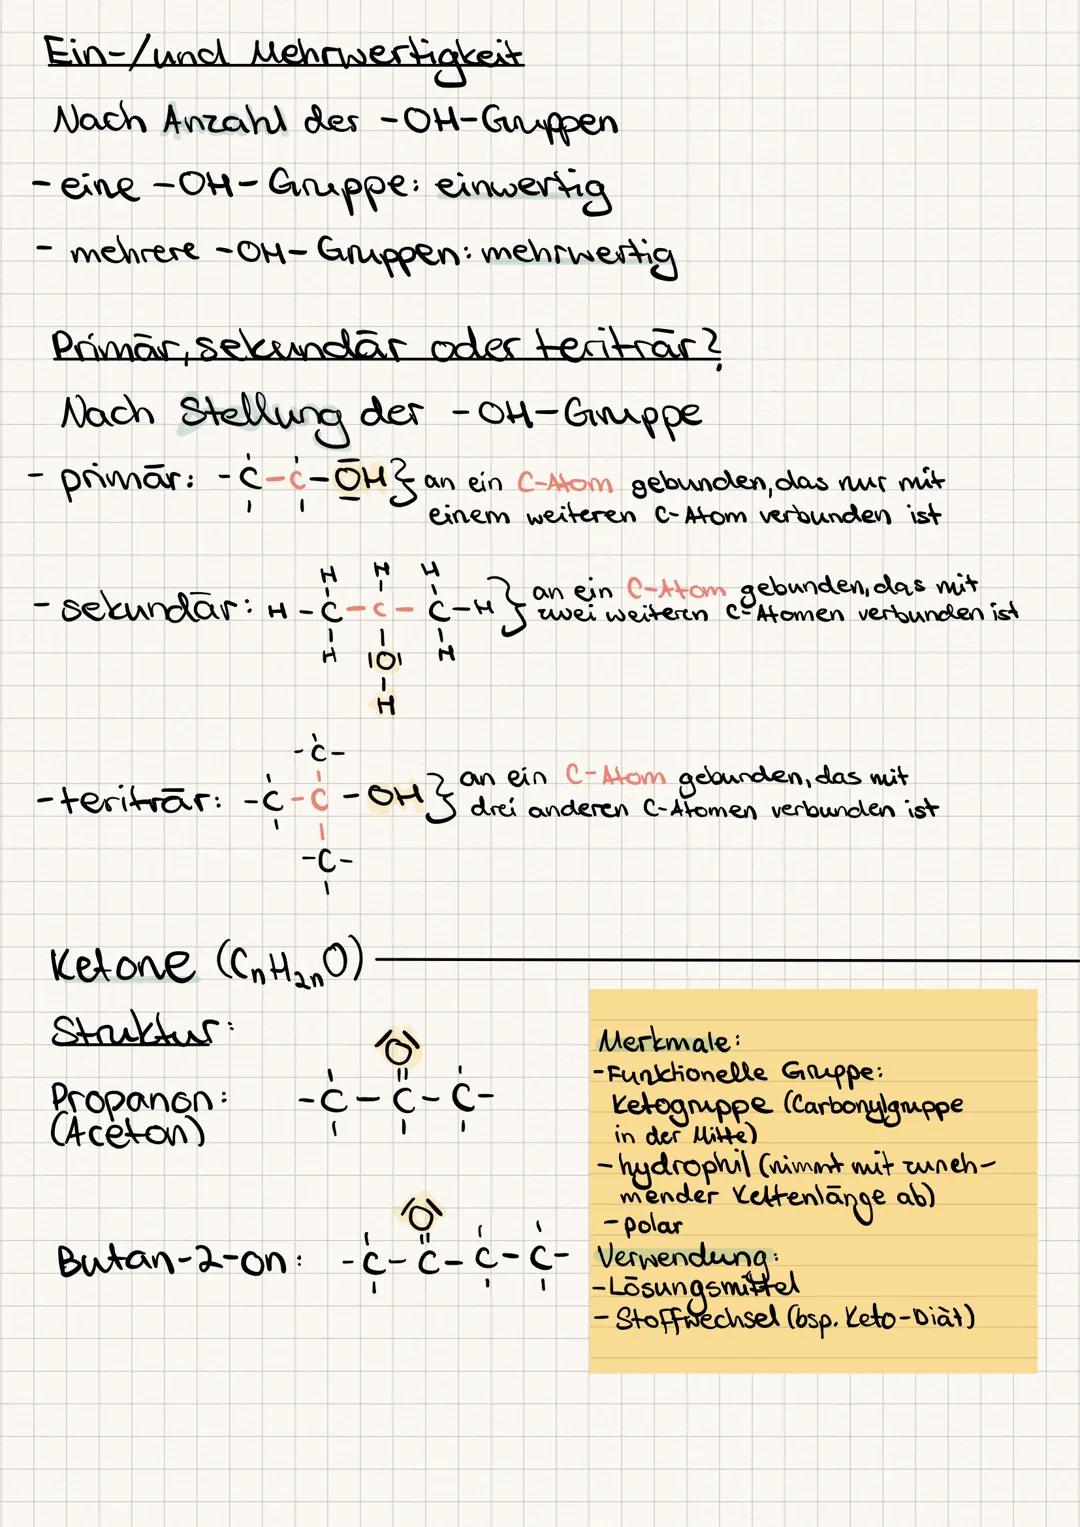 Ein-/und Mehrwertigkeit
Nach Anzahl der -OH-Gruppen
- eine -OH-Gruppe: einwertig
- mehrere -OH-Gruppen: mehrwertig
Primär, sekundär oder teriträr?
Nach Stellung der -OH-Gruppe
- primär: -C-C-OH } an ein C-Atom gebunden, das nur mit
einem weiteren C-Atom verbunden ist
H H H
- sekundär: H-C-C-C-H } an ein C-Atom gebunden, das mit
zwei weitern C-Atomen verbunden ist
H |O| H
H
-C-
- teriträr: -C-C-OH } an ein C-Atom gebunden, das mit
drei anderen C-Atomen verbunden ist
-C-
Ketone (CnH2nO)
Struktur:
O
Propanon: -C-C-C-
(Aceton)
O
Butan-2-on: -C-C-C-C-
Merkmale:
- Funktionelle Gruppe:
Ketogruppe (Carbonylgruppe
in der Mitte)
- hydrophil (nimmt mit zuneh-
mender Kettenlänge ab)
- polar
Verwendung:
- Lösungsmittel
- Stoffwechsel (bsp. Keto-Diät)